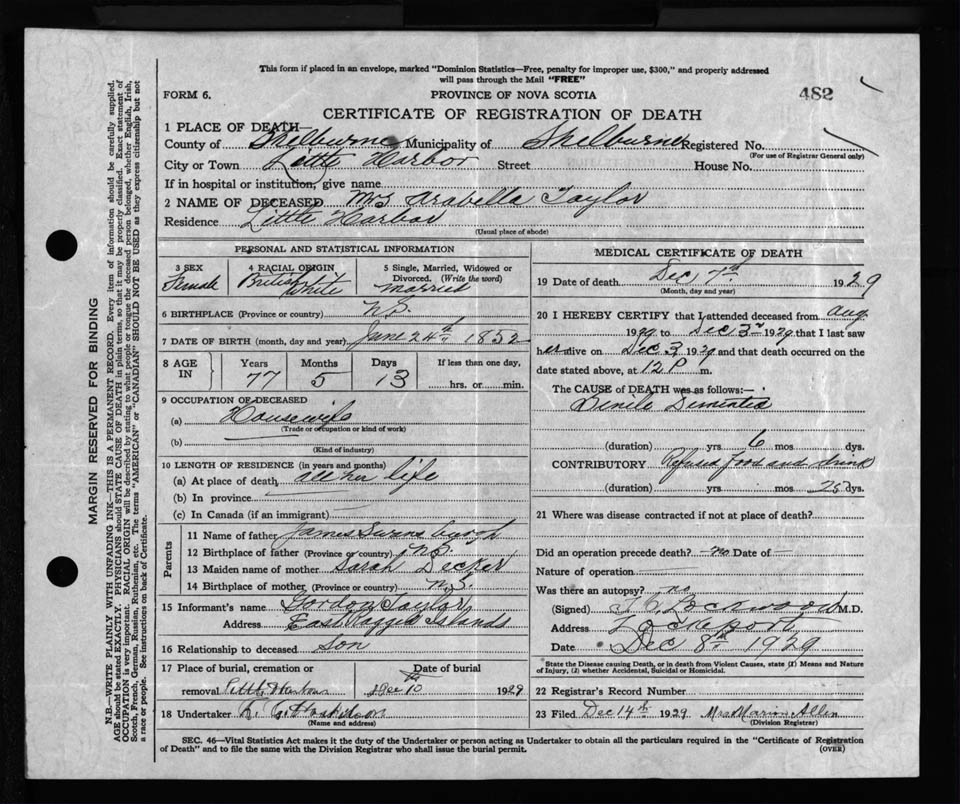 This form if placed in an envelope, marked "Dominion Statistics—Free, penalty for improper use, $300," and properly addressed
will pass through the Mail "FREE"
FORM 6.
PROVINCE OF NOVA SCOTIA
482
CERTIFICATE OF REGISTRATION OF DEATH
1 PLACE OF DEATH—
County of Shelburne Municipality of Shelburne Registered No.
(For use of Registrar General only)
City or Town Little Harbor Street House No.
If in hospital or institution, give name
2 NAME OF DECEASED Mrs Arabella Taylor
Residence Little Harbor
(Usual place of abode)
PERSONAL AND STATISTICAL INFORMATION
3 SEX
Female
4 RACIAL ORIGIN
British White
5 Single, Married, Widowed or
Divorced. (Write the word)
married
6 BIRTHPLACE (Province or country) N.S.
7 DATE OF BIRTH (month, day and year) June 24th 1852
8 AGE IN
Years Months Days If less than one day,
77 5 13 hrs. or min.
9 OCCUPATION OF DECEASED
(a) Housewife
(Trade or occupation or kind of work)
(b)
(Kind of industry)
10 LENGTH OF RESIDENCE (in years and months)
(a) At place of death all her life
(b) In province
(c) In Canada (if an immigrant)
Parents
11 Name of father James
12 Birthplace of father (Province or country) N.S.
13 Maiden name of mother Sarah Decker
14 Birthplace of mother (Province or country) N.S.
15 Informant's name Gordon Taylor
Address East Ragged Islands
16 Relationship to deceased Son
17 Place of burial, cremation or
removal Little Harbor
Date of burial
Dec 10th 1929
18 Undertaker
(Name and address)
MEDICAL CERTIFICATE OF DEATH
19 Date of death Dec 7th 1929
(Month, day and year)
20 I HEREBY CERTIFY that I attended deceased from Aug
1929 to Dec 3rd 1929 that I last saw
her alive on Dec 3 1929 and that death occurred on the
date stated above, at 12 P m.
The CAUSE of DEATH was as follows:—
Senile Dementia
(duration) yrs 6 mos dys.
CONTRIBUTORY Refused food and drink
(duration) yrs. mos. 25 dys.
21 Where was disease contracted if not at place of death?
Did an operation precede death? no Date of —
Nature of operation —
Was there an autopsy? no
(Signed) Lockwood M.D.
Address Lockeport
Date Dec 8th 1929
*State the Disease causing Death, or in death from Violent Causes, state (1) Means and Nature
of Injury, (2) whether Accidental, Suicidal or Homicidal.
22 Registrar's Record Number
23 Filed Dec 14th 1929 Mrs Allen
(Division Registrar)
SEC. 46—Vital Statistics Act makes it the duty of the Undertaker or person acting as Undertaker to obtain all the particulars required in the "Certificate of Registration
of Death" and to file the same with the Division Registrar who shall issue the burial permit.
(OVER)
MARGIN RESERVED FOR BINDING
N.B.—WRITE PLAINLY WITH UNFADING INK—THIS IS A PERMANENT RECORD. Every item of information should be carefully supplied.
AGE should be stated EXACTLY. PHYSICIANS should STATE CAUSE OF DEATH in plain terms, so that it may be properly classified. Exact statement of
OCCUPATION is very important. RACIAL ORIGIN will be described by stating to what people or tongue the deceased person belonged, whether English, Irish,
Scotch, French, German, Russian, Ruthenian, etc. The terms "AMERICAN" or "CANADIAN" SHOULD NOT BE USED as they express citizenship but not
a race or people. See instructions on back of Certificate.